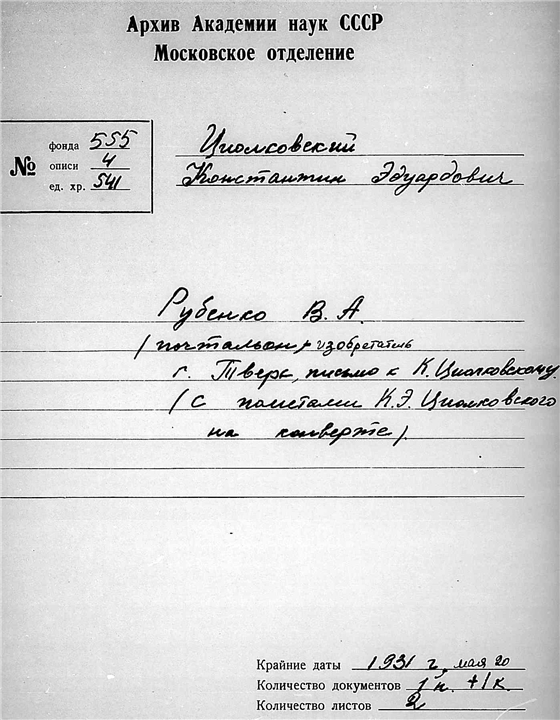 Архив Академии наук СССР
Московское отделение
№
фонда 555
описи 4
ед. хр. 541
Циолковский
Константин Эдуардович
Рубенко В. А.
(почтальон, изобретатель
г. Тверь, письмо к К. Циолковскому
(с пометами К.Э. Циолковского
на конверте).
Крайние даты 1931 г. мая 20
Количество документов 1 п. + 1 к.
Количество листов 2